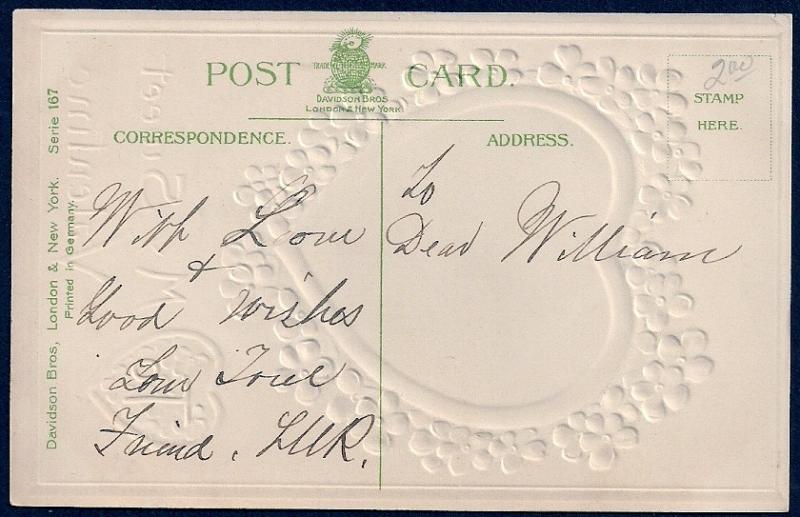 POST CARD.
TRADE MARK.
DAVIDSON BROS
LONDON & NEW YORK
CORRESPONDENCE.
ADDRESS.
STAMP
HERE.
200
Davidson Bros, London & New York. Serie 167
Printed in Germany.
With Love
&
Good Wishes
from True
Friend.
To
Dear William